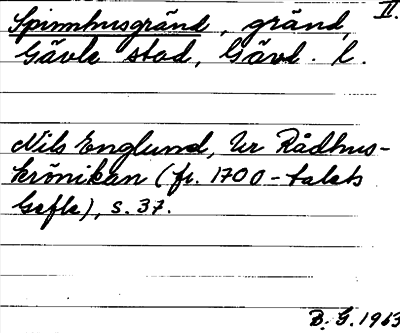 II.
Spinnhusgränd, gränd,
Gävle stad, Gävl. l.
Nils Englund, Ur Rådhus-
krönikan (fr. 1700-talets
Gefle), s. 37.
B. G. 1963